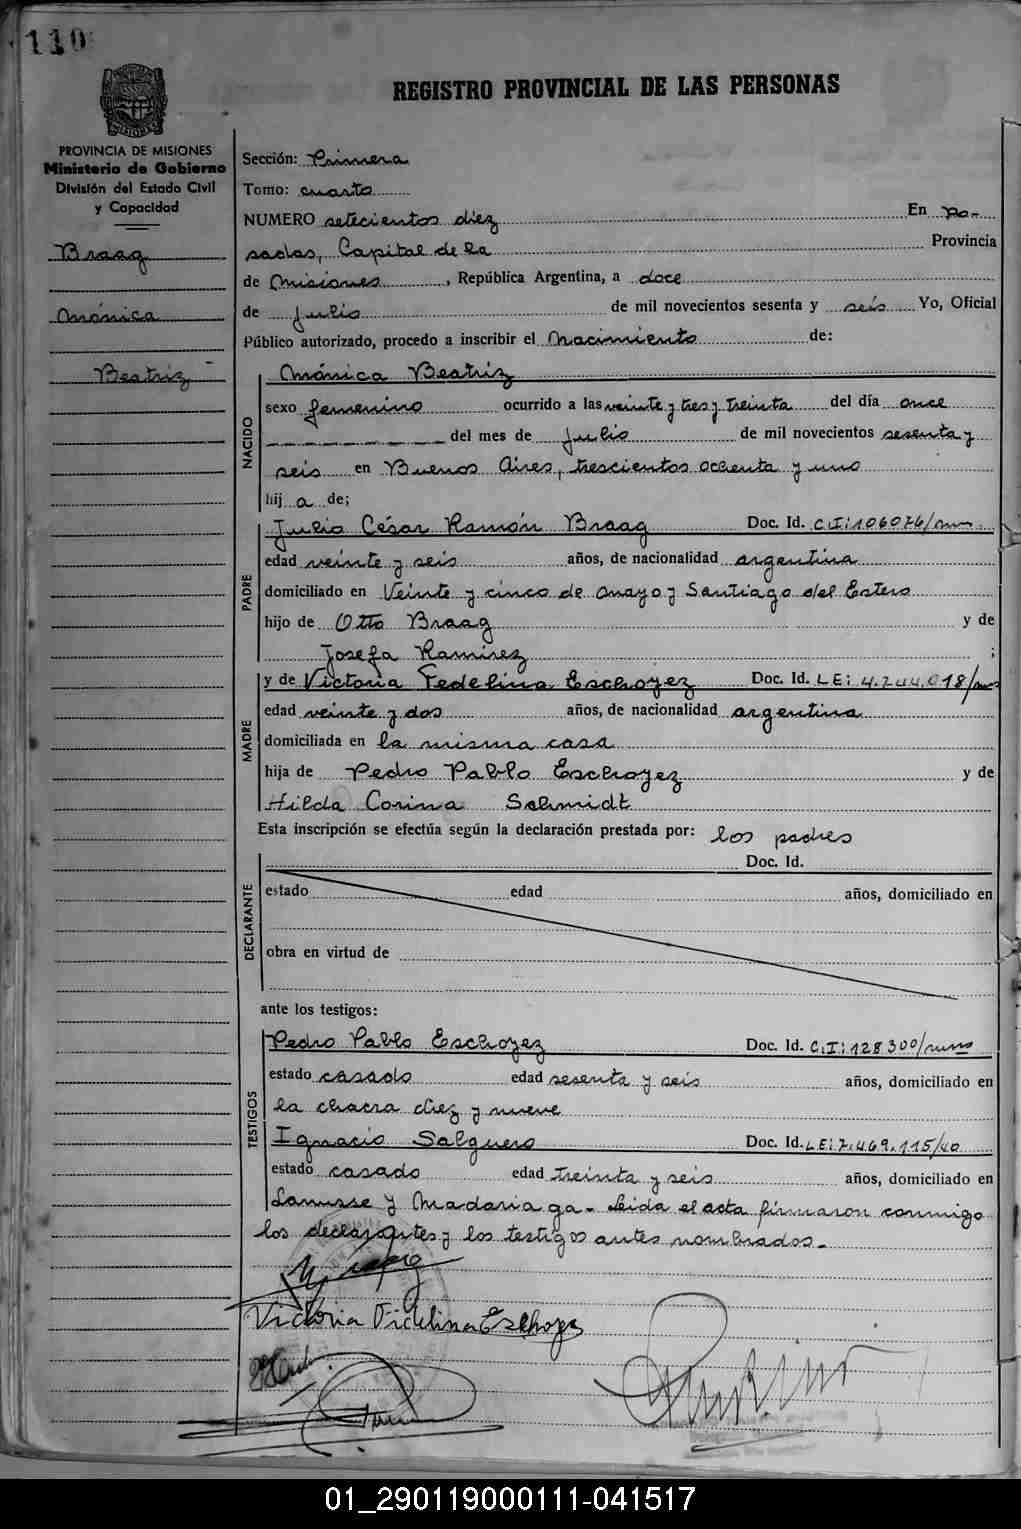 110
REGISTRO PROVINCIAL DE LAS PERSONAS
MISIONES
PROVINCIA DE MISIONES
Ministerio de Gobierno
División del Estado Civil
y Capacidad
Braag
Mónica
Beatriz
Sección: Primera
Tomo: cuarto
NUMERO setecientos diez En Po-
sadas, Capital de la Provincia
de Misiones, República Argentina, a doce
de Julio de mil novecientos sesenta y seis Yo, Oficial
Público autorizado, procedo a inscribir el Nacimiento de:
NACIDO
Mónica Beatriz
sexo femenino ocurrido a las veinte y tres y treinta del día once
del mes de Julio de mil novecientos sesenta y
seis en Buenos Aires, trescientos ochenta y uno
hij a de;
PADRE
Julio César Ramón Braag Doc. Id. C.I: 106076/
edad veinte y seis años, de nacionalidad argentina
domiciliado en Veinte y cinco de Mayo y Santiago del Estero
hijo de Otto Braag y de
Josefa Ramirez ;
MADRE
y de Victoria Fedelina Eschoyez Doc. Id. LE: 4.244.018/
edad veinte y dos años, de nacionalidad argentina
domiciliada en la misma casa
hija de Pedro Pablo Eschoyez y de
Hilda Corina Schmidt
Esta inscripción se efectúa según la declaración prestada por: los padres
DECLARANTE
Doc. Id.
estado edad años, domiciliado en
obra en virtud de
ante los testigos:
TESTIGOS
Pedro Pablo Eschoyez Doc. Id. C.I: 128300/
estado casado edad sesenta y seis años, domiciliado en
la chacra diez y nueve
Ignacio Salguero Doc. Id. LE: 7.469.115/40
estado casado edad treinta y seis años, domiciliado en
Lanusse y Madariaga- Leida el acta firmaron conmigo
los declarantes y los testigos antes nombrados.-
Victoria Fidelina Eschoyez
01_290119000111-041517